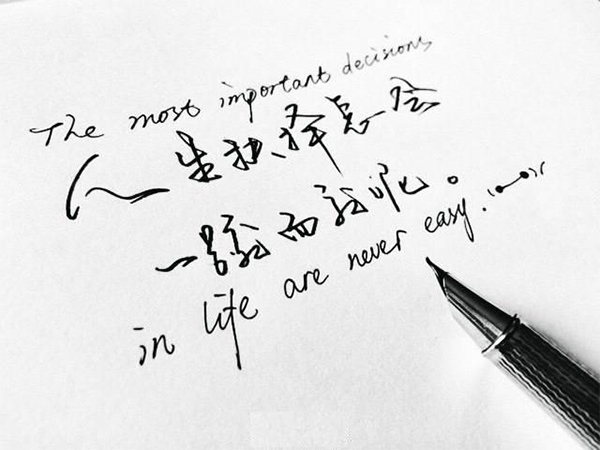 The most important decisions
人生抉择怎会
一蹴而就呢。
in life are never easy.